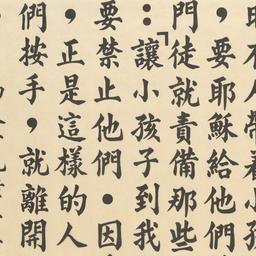 人帶着小孩
，要耶穌給他們
門徒就責備那些
：「讓小孩子到我
要禁止他們．因
，正是這樣的人
們按手，就離開